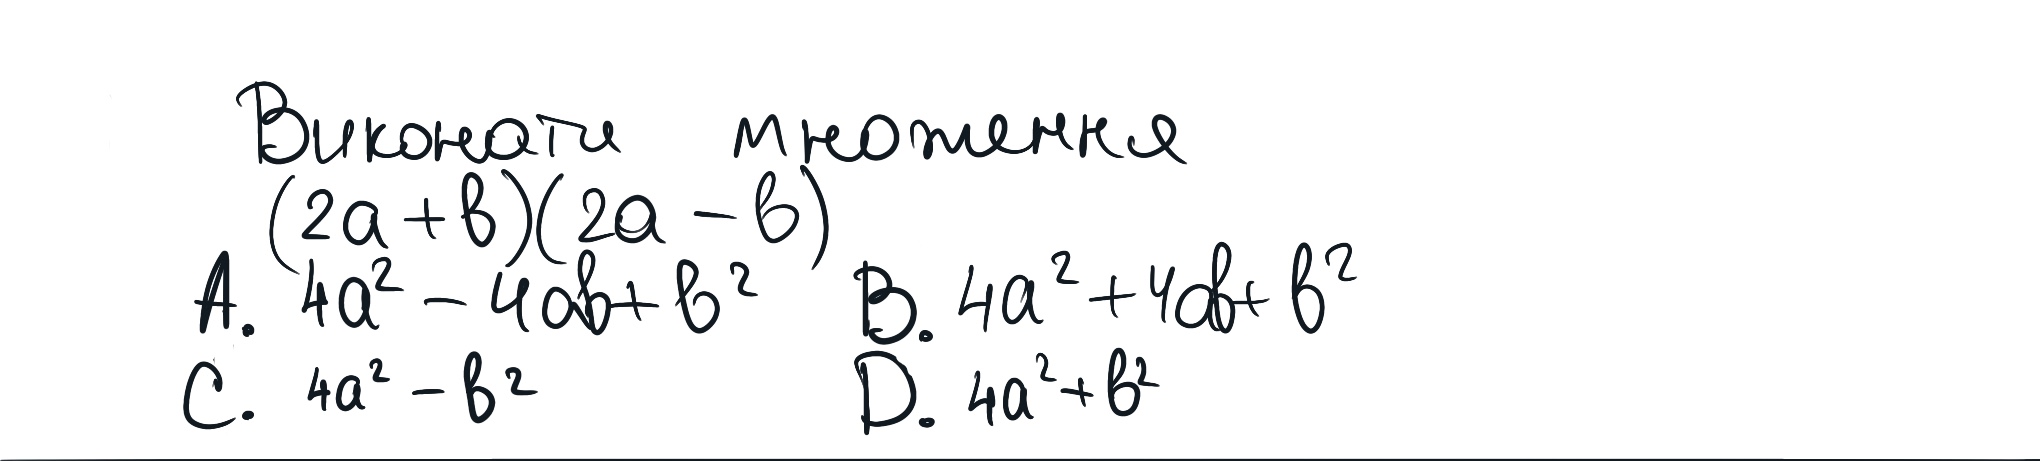 Виконати множення
(2a + b)(2a - b)
A. 4a² - 4ab + b² B. 4a² + 4ab + b²
C. 4a² - b² D. 4a² + b²